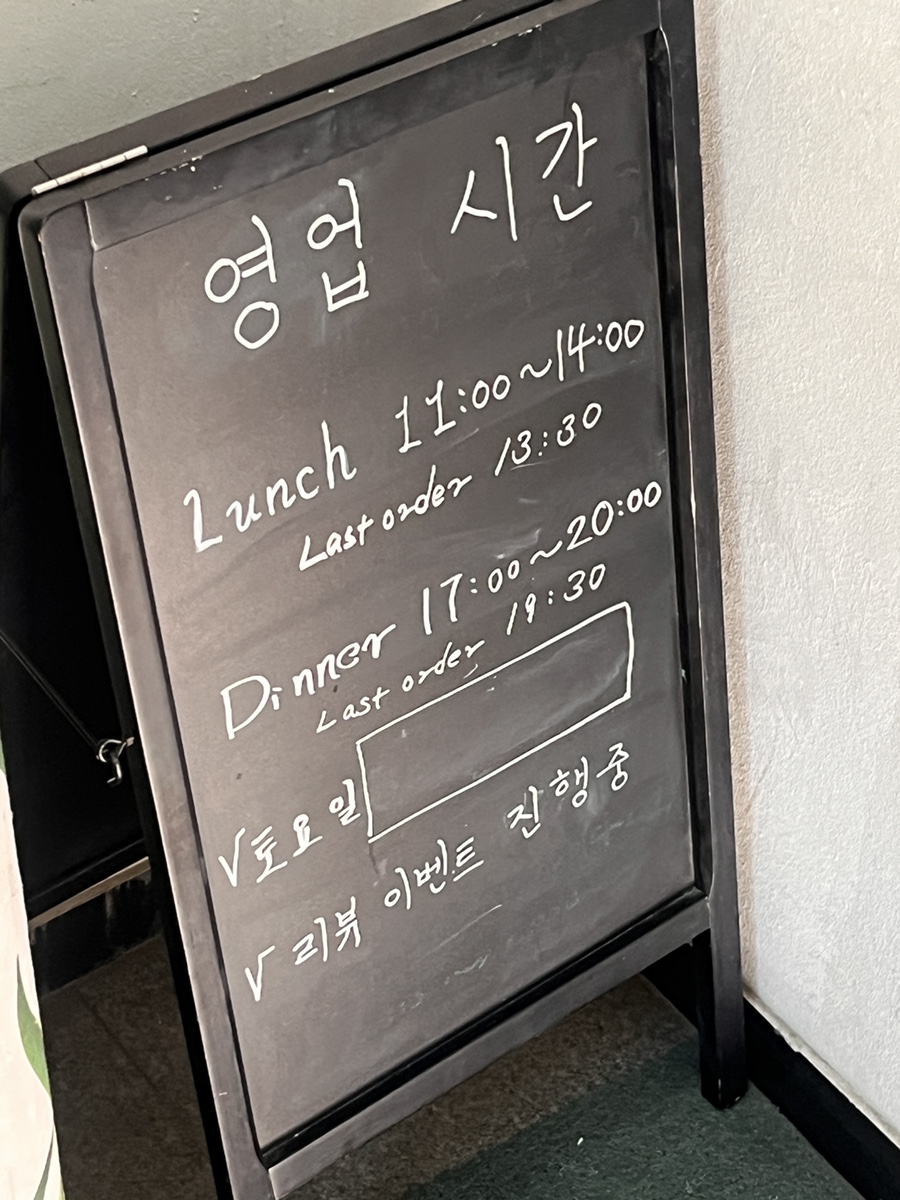 영업 시간
Lunch 11:00~14:00
Last order 13:30
Dinner 17:00~20:00
Last order 19:30
V토요일
V 리뷰 이벤트 진행중